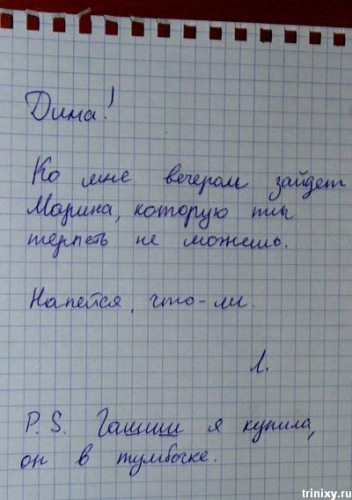 Дима!
Ко мне вечером зайдет
Марина, которую ты
терпеть не можешь.
Напейся, что-ли.
Л.
P.S. Гашиш я купила,
он в тумбочке.
trinixy.ru